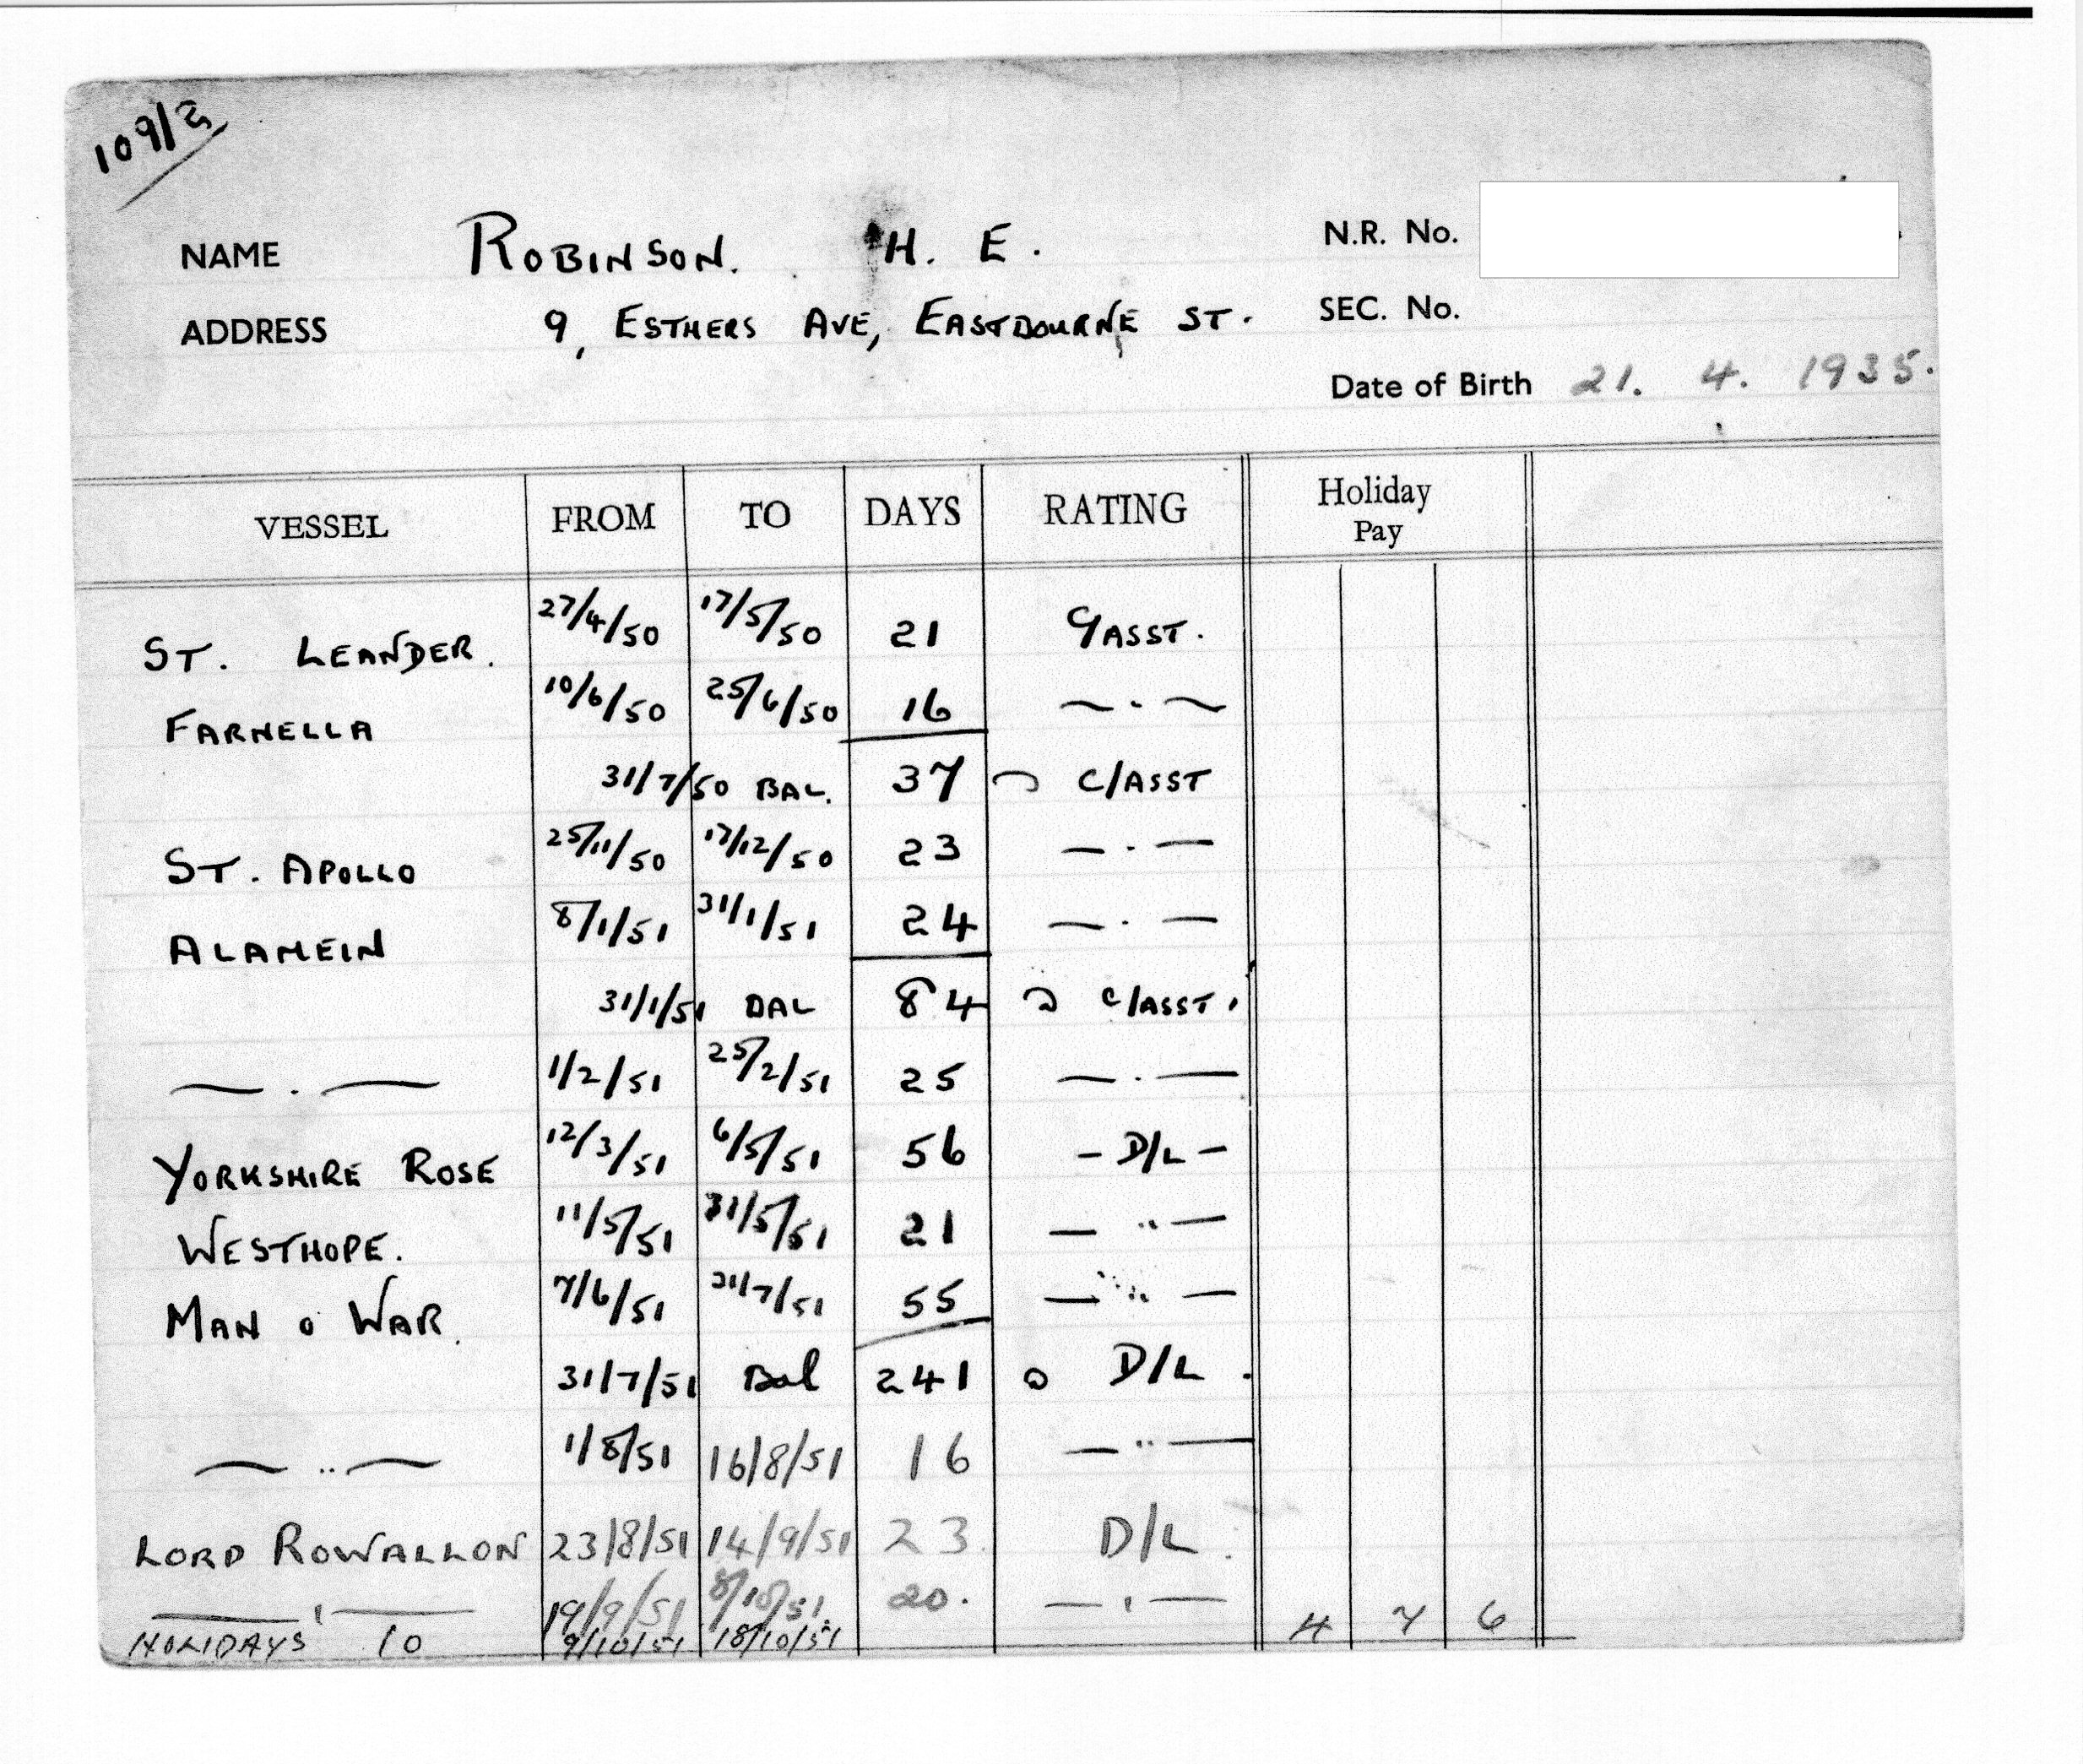 109/2
NAME ROBINSON. H. E. N.R. No.
ADDRESS 9, ESTHERS AVE, EASTBOURNE ST. SEC. No.
Date of Birth 21. 4. 1935.
VESSEL FROM TO DAYS RATING Holiday Pay
ST. LEANDER. 27/4/50 17/5/50 21 C/ASST.
FARNELLA 10/6/50 25/6/50 16 — . —
31/7/50 BAL. 37 C/ASST
ST. APOLLO 25/11/50 17/12/50 23 — . —
ALAMEIN 8/1/51 31/1/51 24 — . —
31/1/51 BAL 84 C/ASST.
— . — 1/2/51 25/2/51 25 — . —
YORKSHIRE ROSE 12/3/51 6/5/51 56 – D/L –
WESTHOPE. 11/5/51 31/5/51 21 — " —
MAN O WAR. 7/6/51 31/7/51 55 — " —
31/7/51 Bal 241 D/L.
— " — 1/8/51 16/8/51 16 — " —
LORD ROWALLON 23/8/51 14/9/51 23. D/L.
— ' — 19/9/51 8/10/51. 20. — ' — 4 7 6
HOLIDAYS 10 9/10/51 18/10/51